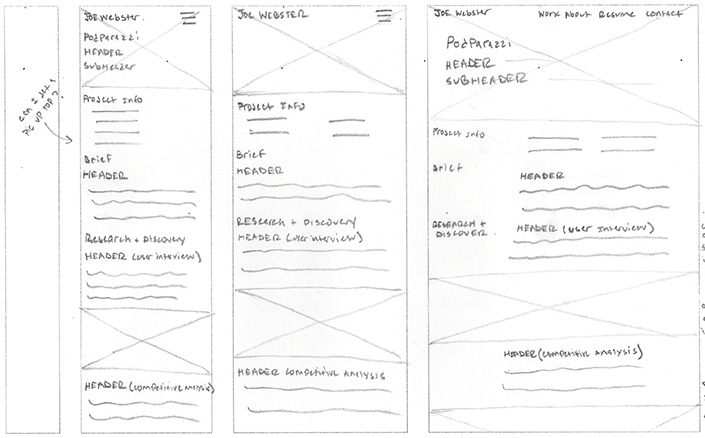 can I get a
pic up top?
JOE Webster.
PodParazzi
HEADER
SUBHEADER
Project Info
Brief
HEADER
Research + Discovery
HEADER (user interview)
HEADER (competitive analysis)
JOE WEBSTER
Project Info
Brief
HEADER
RESEARCH + Discovery
HEADER (user interview)
HEADER COMPETITIVE ANALYSIS
JOE Webster
Work About Resume Contact
PodParazzi
HEADER
SUBHEADER
Project Info
Brief
HEADER
RESEARCH +
DISCOVER
HEADER (user Interview)
HEADER (COMPETITIVE ANALYSIS)